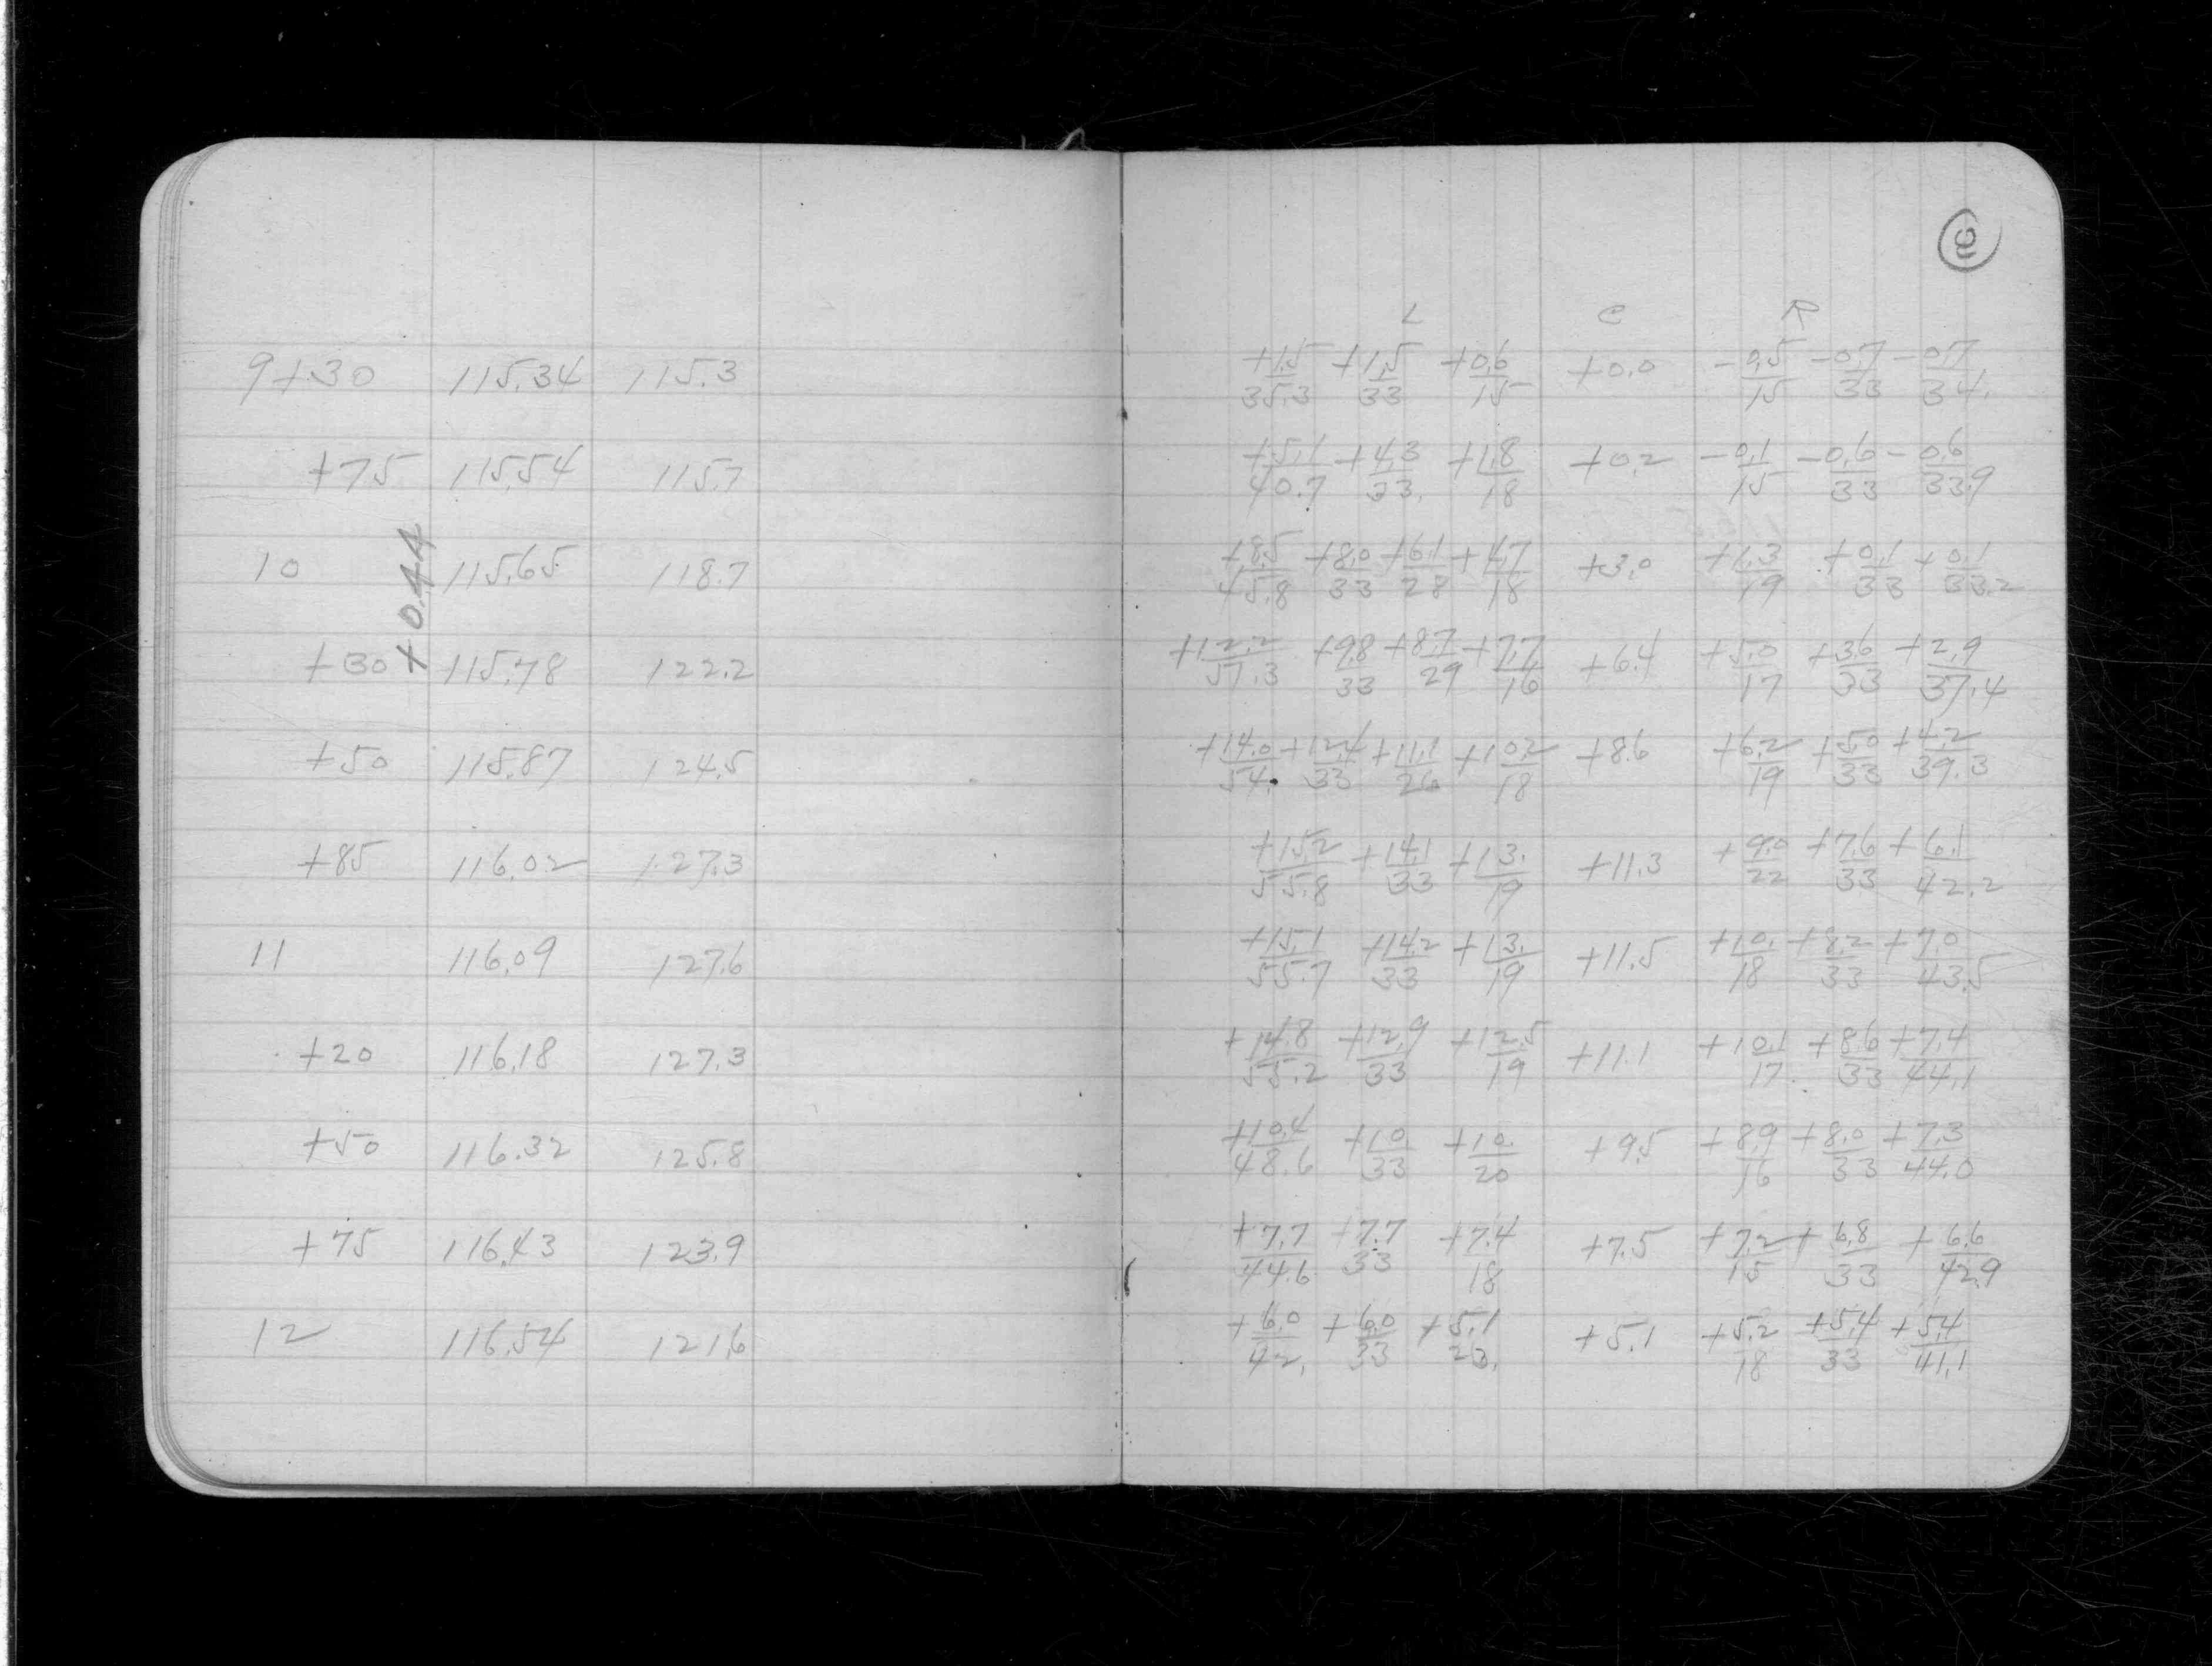 L C R
9+30 115.34 115.3 +1.5/35.3 +1.5/33 +0.6/15 +0.0 -0.5/15 -0.7/33 -0.7/34.
+75 115.54 115.7 +5.1/40.7 +4.3/33. +1.8/18 +0.2 -0.1/15 -0.6/33 -0.6/33.9
10 115.65 118.7 +8.5/45.8 +8.0/33 +6.1/28 +4.7/18 +3.0 +1.3/19 +0.1/33 +0.1/33.2
+0.44
+30 115.78 122.2 +12.2/51.3 +9.8/33 +8.7/29 +7.7/16 +6.4 +5.0/17 +3.6/33 +2.9/37.4
+50 115.87 124.5 +14.0/54. +12.4/33 +11.1/26 +10.2/18 +8.6 +6.2/19 +5.0/33 +4.2/39.3
+85 116.02 127.3 +15.2/55.8 +14.1/33 +13./19 +11.3 +9.0/22 +7.6/33 +6.1/42.2
11 116.09 127.6 +15.1/55.7 +14.2/33 +13./19 +11.5 +10./18 +8.2/33 +7.0/43.5
+20 116.18 127.3 +14.8/55.2 +12.9/33 +12.5/19 +11.1 +10.1/17 +8.6/33 +7.4/44.1
+50 116.32 125.8 +10.4/48.6 +10./33 +10./20 +9.5 +8.9/16 +8.0/33 +7.3/44.0
+75 116.43 123.9 +7.7/44.6 +7.7/33 +7.4/18 +7.5 +7.2/15 +6.8/33 +6.6/42.9
12 116.54 121.6 +6.0/42. +6.0/33 +5.1/23. +5.1 +5.2/18 +5.4/33 +5.4/41.1